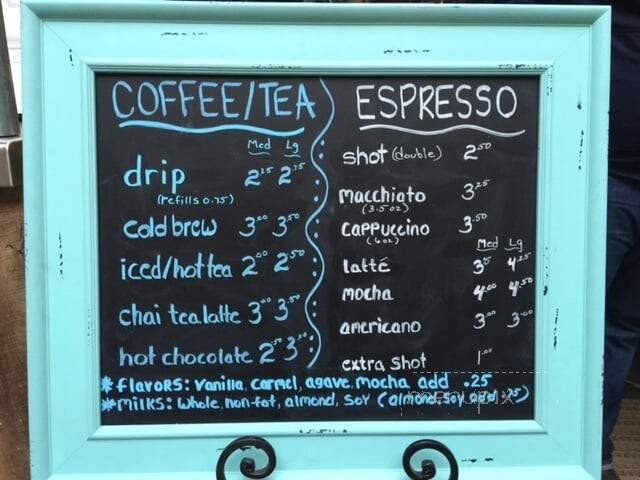 COFFEE/TEA
Med Lg
drip 2.25 2.75
(refills 0.75)
cold brew 3.00 3.50
iced/hot tea 2.00 2.50
chai tea latte 3.00 3.50
hot chocolate
ESPRESSO
shot (double) 2.50
macchiato 3.25
(3.5oz)
cappuccino 3.50
(6oz)
Med Lg
latté 4.25
mocha 4.00 4.50
americano 3.00
extra shot 1.00
*flavors: vanilla, carmel, agave, mocha add .25
*milks: whole, non-fat, almond, soy (almond, soy add .75)